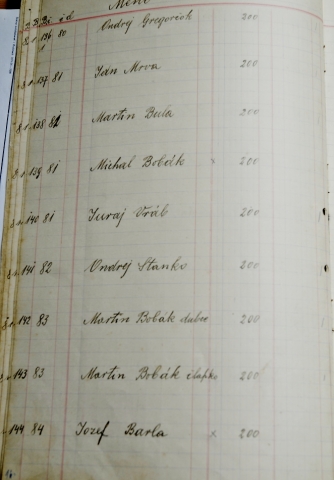 Meno
136 80 Ondrej Gregorčok 200
137 81 Ján Mrva 200
138 81 Martin Bula 200
139 81 Michal Bobák x 200
140 81 Juraj Vráb 200
141 82 Ondrej Stanko 200
142 83 Martin Bobák dubec 200
143 83 Martin Bobák 200
144 84 Jozef Barla x 200